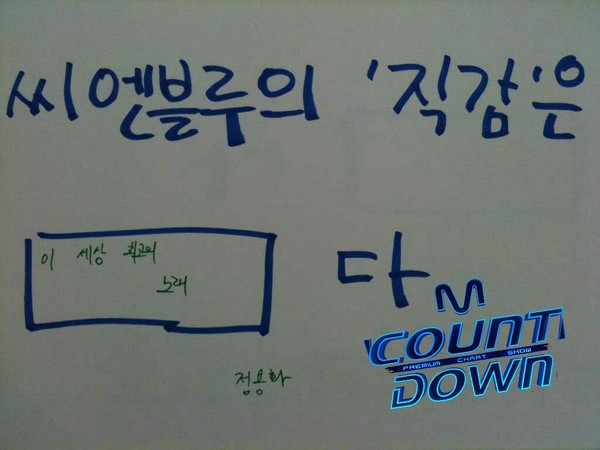 씨엔블루의 '직감'은
이 세상 최고의
노래
다
정용화
M
COUNT
PREMIUM CHART SHOW
DOWN